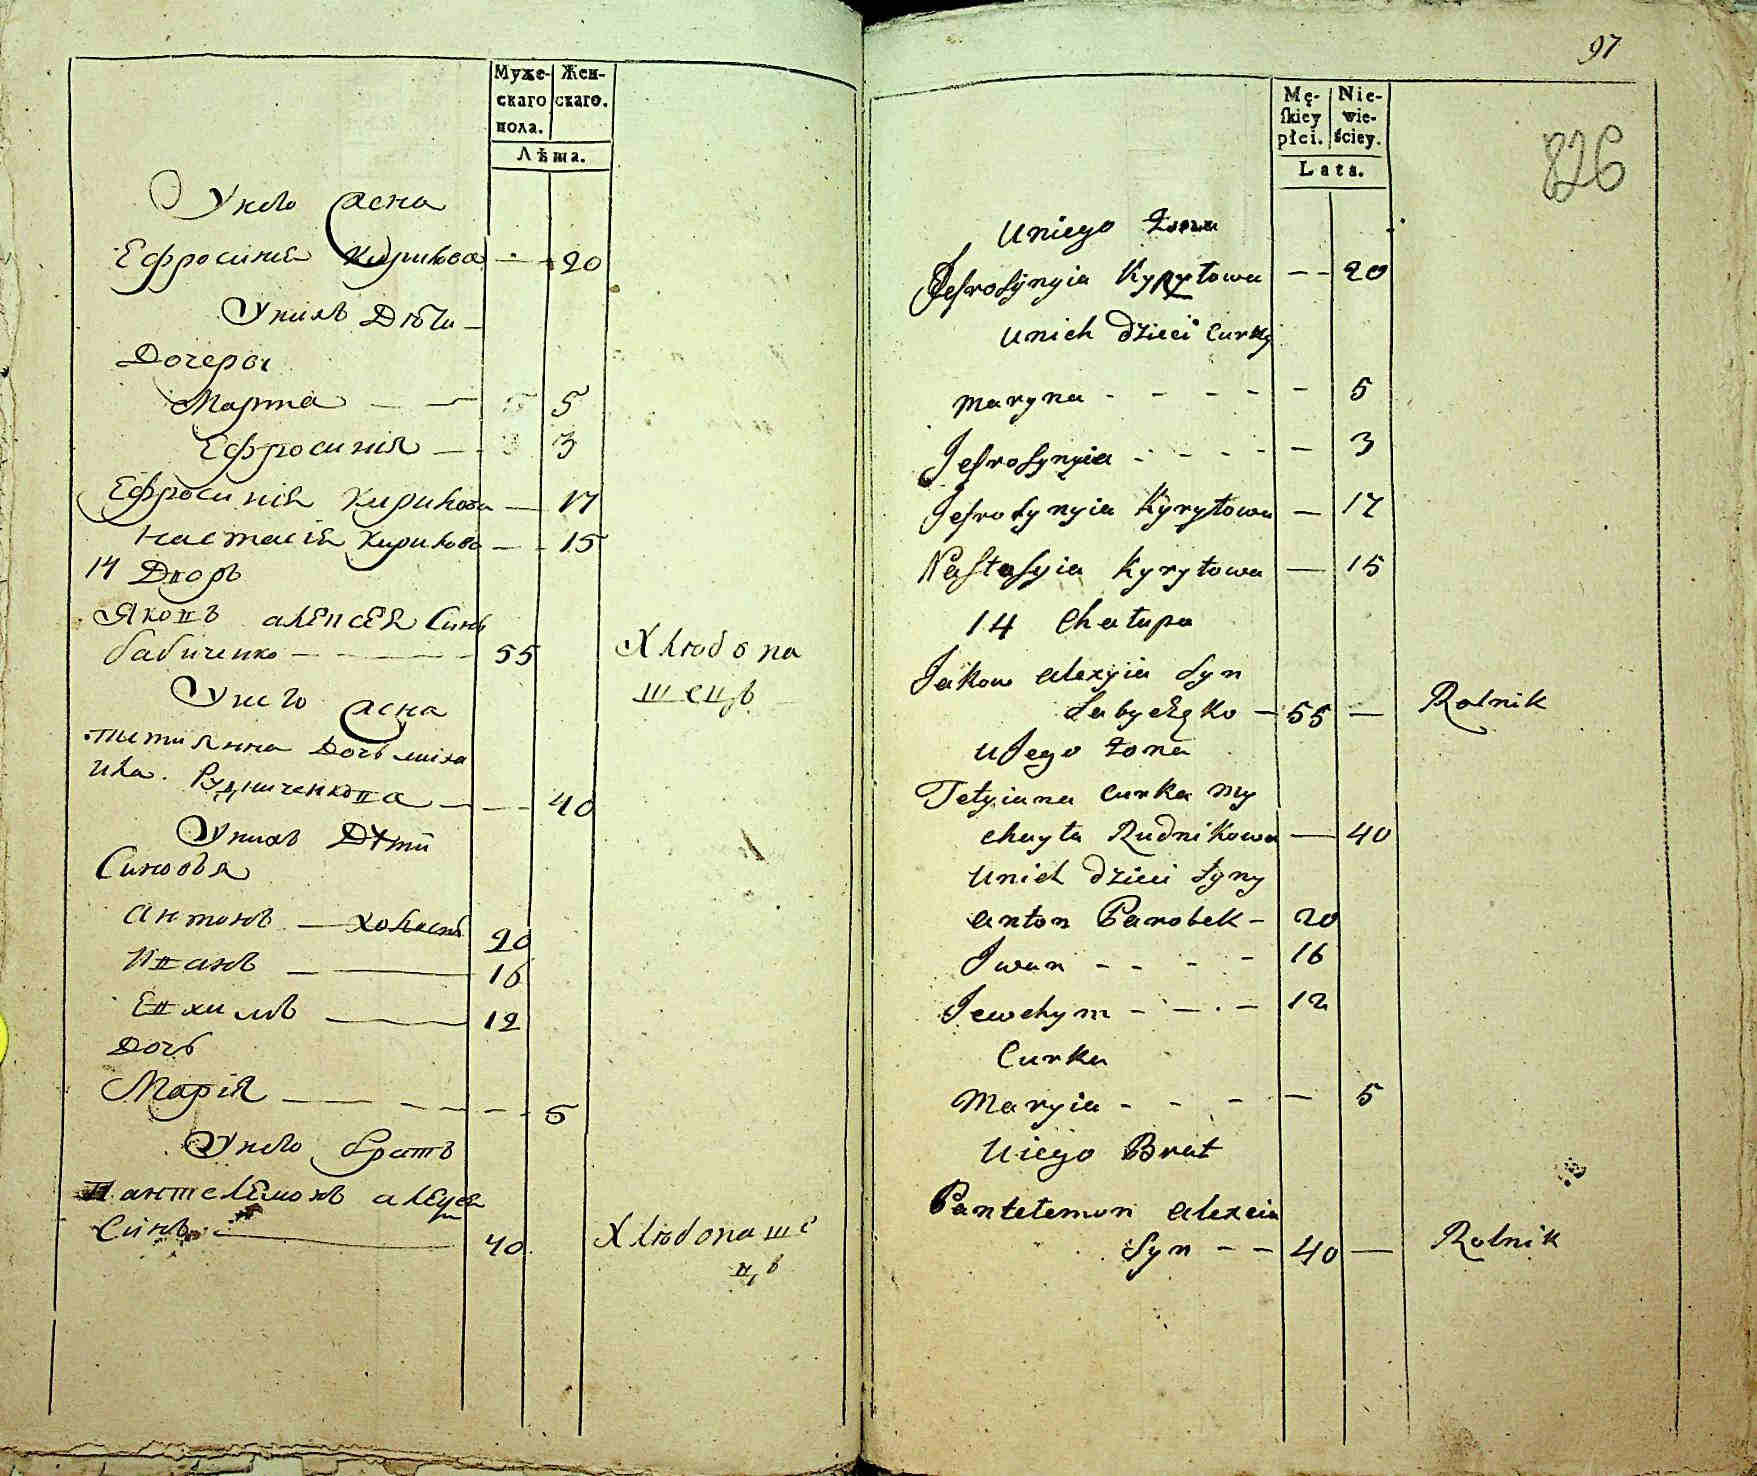 Муже-
скаго
пола.
Жен-
скаго.
Лѣта.
У него жена
Ефросиния Кирилова 20
У нихъ Дѣти
Дочеры
Марина 5
Ефросинія 3
Ефросинія Кирилова 17
Настасія Кирилова 15
14 Дворъ
Яковъ алексея Синъ
бабиченко 55
Хлѣбопа
шецъ
У него жена
титиянна Дочь миха
ила Рудниченкова 40
У нихъ Дѣти
Синовья
Антонъ холостъ 20
Иванъ 16
Евхимъ 12
Дочь
Марія 5
У него братъ
Пантелемонъ алексея
Синъ 40
Хлѣбопаше
цъ
97
826
Mę-
skiey
płci.
Nie-
wie-
ściey.
Lata.
U niego Żona
Jefrosynyia Kyryłowa 20
U nich dzieci Curky
Maryna 5
Jefrosynyia 3
Jefrosynyia Kyryłowa 17
Nastasyia Kyryłowa 15
14 Chałupa
Jakow Alexyia Syn
Babyczęko 55 Rolnik
U Jego Żona
Tetyiana Curka My
chayła Rudnikowa 40
U nich dzieci Syny
Anton Parobek 20
Jwan 16
Jewchym 12
Curka
Maryia 5
U iego Brat
Pantełemon Alexeia
Syn 40 Rolnik